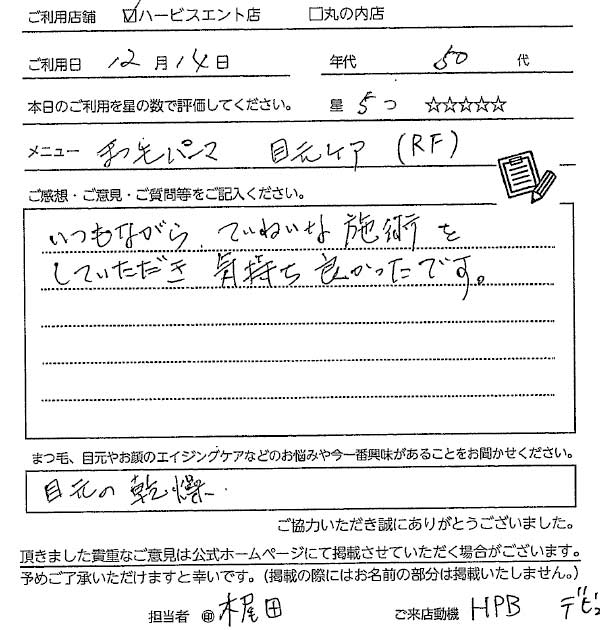 ご利用店舗 ☑ハービスエント店 □丸の内店
ご利用日 12月14日 年代 50代
本日のご利用を星の数で評価してください。 星 5つ ☆☆☆☆☆
メニュー まつ毛パーマ 目元ケア (RF)
ご感想・ご意見・ご質問等をご記入ください。
いつもながら、ていねいな施術を
していただき 気持ち良かったです。
まつ毛、目元やお顔のエイジングケアなどのお悩みや今一番興味があることをお聞かせください。
目元の乾燥
ご協力いただき誠にありがとうございました。
頂きました貴重なご意見は公式ホームページにて掲載させていただく場合がございます。
予めご了承いただけますと幸いです。(掲載の際にはお名前の部分は掲載いたしません。)
担当者 ㊞ 木尾田 ご来店動機 HPB